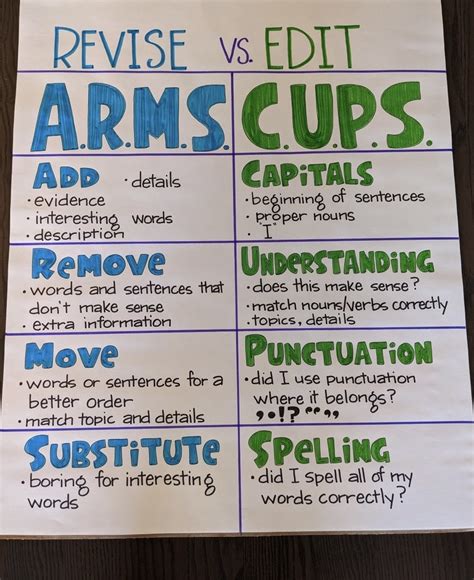 REVISE VS. EDIT
A.R.M.S.
ADD
· details
· evidence
· interesting words
· description
REMOVE
· words and sentences that
don't make sense
· extra information
MOVE
· words or sentences for a
better order
· match topic and details
SUBSTITUTE
· boring for interesting
words
C.U.P.S.
CAPITALS
· beginning of sentences
· proper nouns
· I
UNDERSTANDING
· does this make sense?
· match nouns/verbs correctly
· topics, details
PUNCTUATION
· did I use punctuation
where it belongs?
, . ! ? “ ” ,,
SPELLING
· did I spell all of my
words correctly?